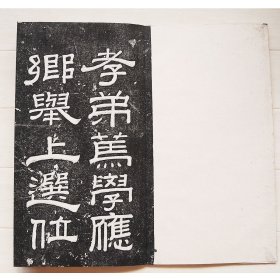 孝弟蔿學應
鄉舉上選位